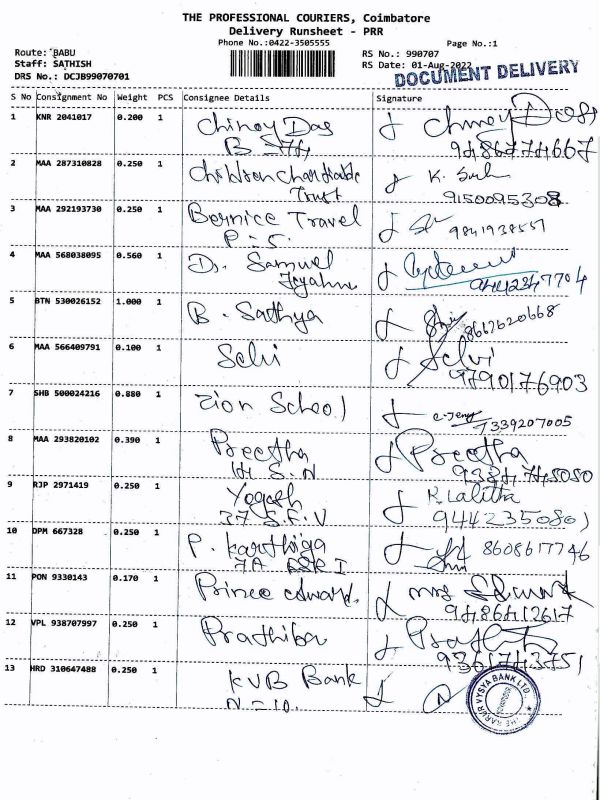 THE PROFESSIONAL COURIERS, Coimbatore
Delivery Runsheet - PRR
Phone No.:0422-3505555
Page No.:1
Route: BABU
Staff: SATHISH
DRS No.: DCJB99070701
RS No.: 990707
RS Date: 01-Aug-2022
DOCUMENT DELIVERY
S No Consignment No Weight PCS Consignee Details Signature
1 KNR 2041017 0.200 1 Chinoy Das
2 MAA 287310828 0.250 1 Trust K.
9150095308
3 MAA 292193730 0.250 1 Bernice Travel
P-5. 9841938557
4 MAA 568038095 0.560 1 Dr. Samuel
5 BTN 530026152 1.000 1 B. Sathya 8667620668
6 MAA 566409791 0.100 1 Selvi Selvi
9790176903
7 SHB 500024216 0.880 1 Zion School
7339207005
8 MAA 293820102 0.390 1 Preetha Preetha
9 RJP 2971419 0.250 1 Yogesh R. Lalitha
37 S.F.V 9442350801
10 DPM 667328 0.250 1 P. Karthiga 8608617746
7A
11 PON 9330143 0.170 1 Prince edward. mrs
9486412617
12 VPL 938707997 0.250 1 Prathiba
9361743751
13 HRD 310647488 0.250 1 KVB Bank
N-10.
THE KARUR VYSYA BANK LTD.